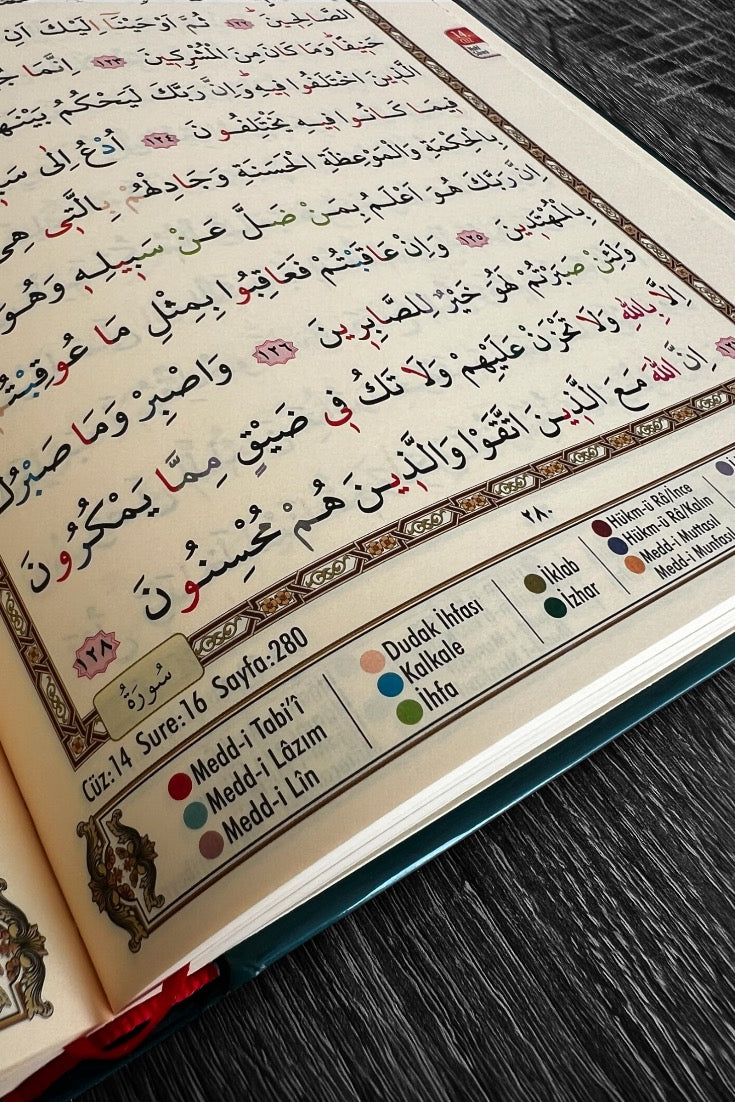 الصَّالِحِينَ ﴿١٢٢﴾ ثُمَّ اَوْحَيْنَٓا اِلَيْكَ اَنِ
حَنِيفًا وَمَا كَانَ مِنَ الْمُشْرِكِينَ ﴿١٢٣﴾ اِنَّمَا
الَّذِينَ اخْتَلَفُوا فِيهِ وَاِنَّ رَبَّكَ لَيَحْكُمُ بَيْنَهُمْ
فِيمَا كَانُوا فِيهِ يَخْتَلِفُونَ ﴿١٢٤﴾ اُدْعُ اِلٰى
بِالْحِكْمَةِ وَالْمَوْعِظَةِ الْحَسَنَةِ وَجَادِلْهُمْ بِالَّتِى هِىَ
اِنَّ رَبَّكَ هُوَ اَعْلَمُ بِمَنْ ضَلَّ عَنْ سَبِيلِهِ وَهُوَ
بِالْمُهْتَدِينَ ﴿١٢٥﴾ وَاِنْ عَاقَبْتُمْ فَعَاقِبُوا بِمِثْلِ مَا عُوقِبْتُمْ
وَلَئِنْ صَبَرْتُمْ لَهُوَ خَيْرٌ لِلصَّابِرِينَ ﴿١٢٦﴾ وَاصْبِرْ وَمَا صَبْرُكَ
اِلَّا بِاللّٰهِ وَلَا تَحْزَنْ عَلَيْهِمْ وَلَا تَكُ فِى ضَيْقٍ مِمَّا يَمْكُرُونَ
اِنَّ اللّٰهَ مَعَ الَّذِينَ اتَّقَوْا وَالَّذِينَ هُمْ مُحْسِنُونَ ﴿١٢٨﴾
٢٨٠
سُورَةُ
Cüz:14 Sure:16 Sayfa:280
Medd-i Tabi'î
Medd-i Lâzım
Medd-i Lîn
Dudak İhfası
Kalkale
İhfa
İklab
İzhar
Hükm-ü Râ/İnce
Hükm-ü Râ/Kalın
Medd-i Muttasıl
Medd-i Munfasıl